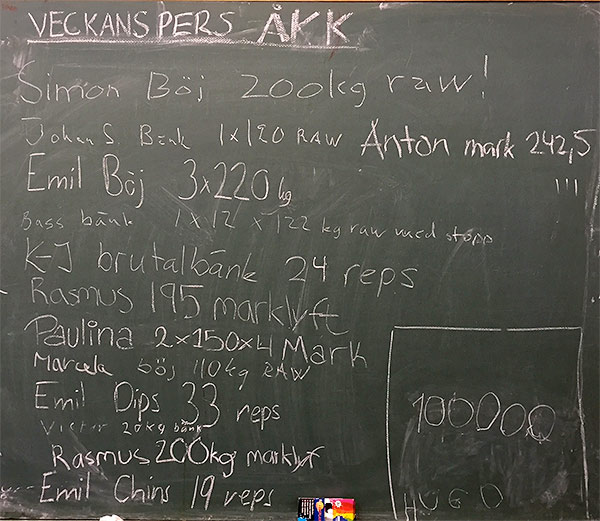 VECKANS PERS ÅKK
Simon Böj 200kg raw!
Johan S. Bänk 1x120 RAW
Anton mark 242,5
!!!
Emil Böj 3x220kg
Bass bänk 1x12 x 122 kg raw med stopp
K-J brutalbänk 24 reps
Rasmus 195 marklyft
Paulina 2x150x4 Mark
Marcela böj 110kg RAW
Emil Dips 33 reps
Victor 20kg bänk
Rasmus 200kg marklyft
Emil Chins 19 reps
100000
HUGO